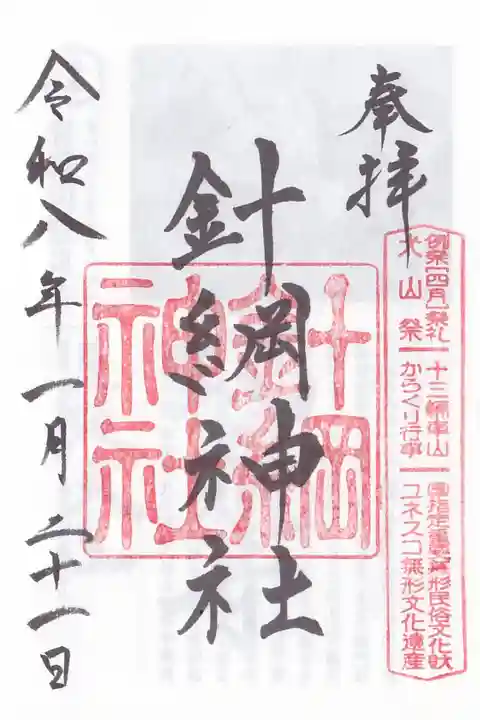 奉拝
針綱神社
令和八年一月二十一日
針綱
神社
例祭【四月】祭礼
犬山祭
十三輌車山
からくり行事
国指定重要無形民俗文化財
ユネスコ無形文化遺産